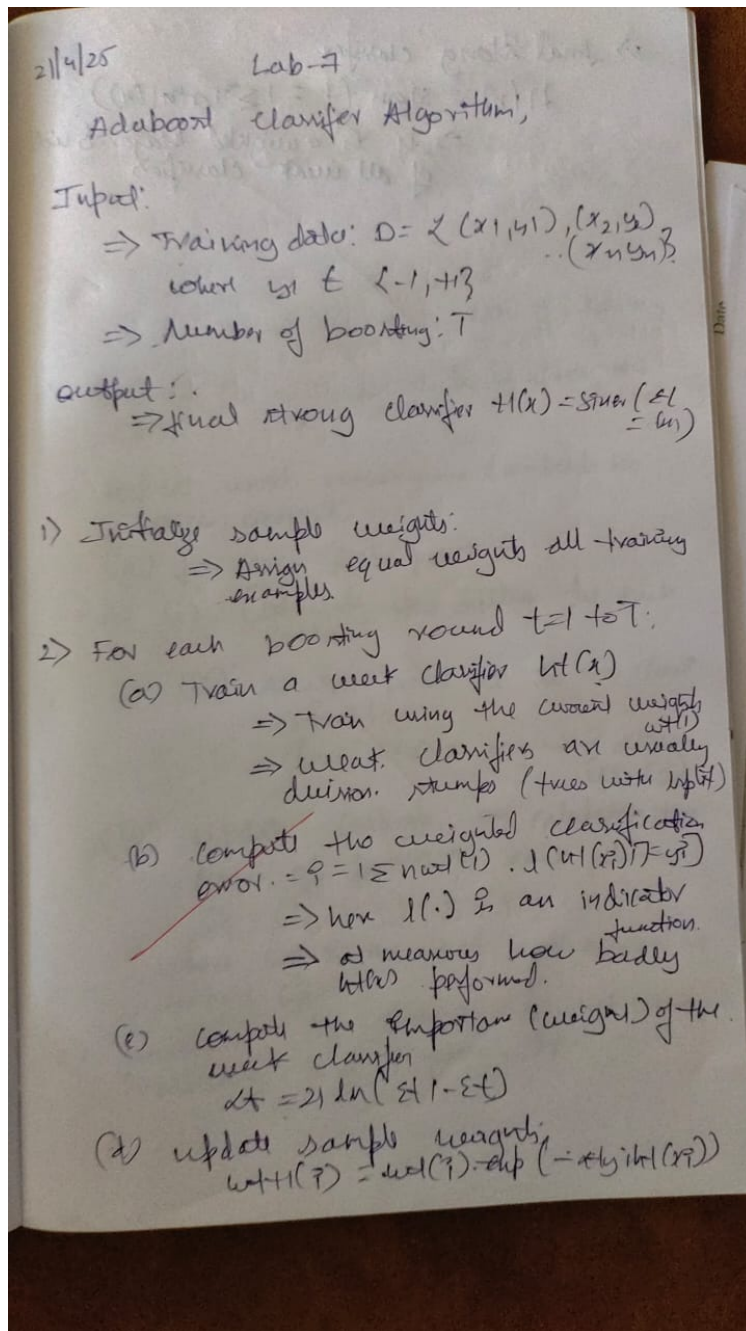 21/4/25
Lab-7
Adaboost Classifer Algorithm;
Input:
=> Training data: D = { (x1,y1), (x2,y2)
.. (xn yn)}
where yi ∈ {-1, +1}
=> Number of boosting: T
output: .
=> final strong classifier H(x) =
1) Initialize sample weights:
=> Assign equal weights all training
examples.
2) For each boosting round t=1 to T:
(a) Train a weak classifier ht(x)
=> Train using the current weights
wt(i)
=> weak classifiers are usually
decision stumps (trees with split)
(b) Compute the weighted classification
error. = i = 1 Σ n wt(i) . 1(ht(xi) != yi)
=> here 1(.) is an indicator
function.
=> measures how badly
ht(x) performed.
(c) compute the (weight) of the
weak classifier
αt = 21 ln( Σt 1-Σt)
(d) update sample weights
wt+1(i) = wt(i).exp (-αtyiht(xi))
Date